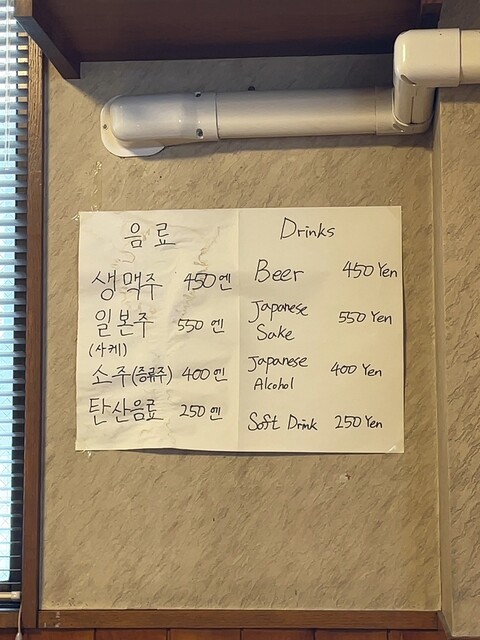 음료
생맥주 450엔
일본주 550엔
(사케)
소주(증류주) 400엔
탄산음료 250엔
Drinks
Beer 450 Yen
Japanese
Sake 550 Yen
Japanese
Alcohol 400 Yen
Soft Drink 250 Yen